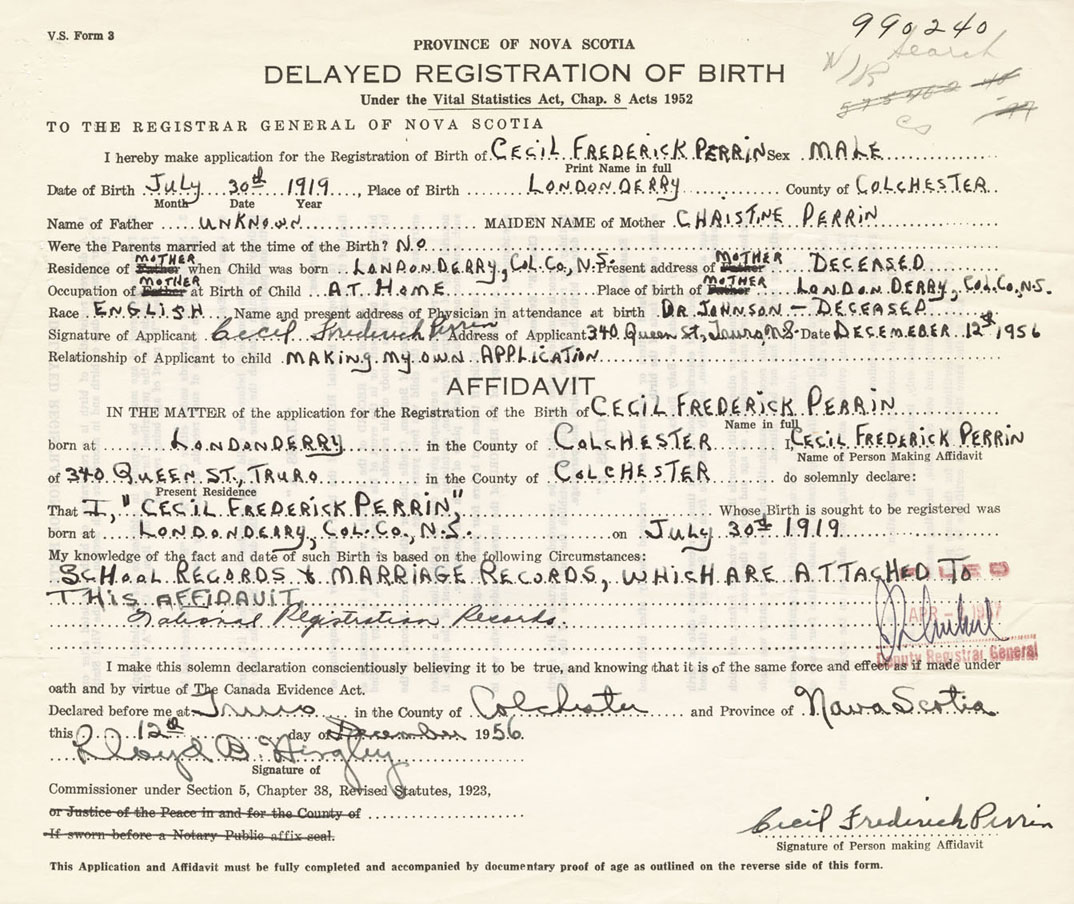 V.S. Form 3
990240
Search
W/R
PROVINCE OF NOVA SCOTIA
DELAYED REGISTRATION OF BIRTH
Under the Vital Statistics Act, Chap. 8 Acts 1952
TO THE REGISTRAR GENERAL OF NOVA SCOTIA
I hereby make application for the Registration of Birth of CECIL FREDERICK PERRIN Sex MALE
Print Name in full
Date of Birth July 30th 1919, Place of Birth LONDONDERRY County of COLCHESTER
Month Date Year
Name of Father UNKNOWN MAIDEN NAME of Mother CHRISTINE PERRIN
Were the Parents married at the time of the Birth? NO
MOTHER MOTHER
Residence of Father when Child was born LONDONDERRY, COL. CO., N.S. Present address of Father DECEASED
MOTHER MOTHER
Occupation of Father at Birth of Child AT HOME Place of birth of Father LONDONDERRY, COL. CO., N.S.
Race ENGLISH Name and present address of Physician in attendance at birth DR JOHNSON – DECEASED
Signature of Applicant Cecil Frederick Perrin Address of Applicant 340 Queen St, Truro, N.S. Date DECEMEBER 12th, 1956
Relationship of Applicant to child MAKING MY OWN APPLICATION
AFFIDAVIT
IN THE MATTER of the application for the Registration of the Birth of CECIL FREDERICK PERRIN
Name in full
born at LONDONDERRY in the County of COLCHESTER I, CECIL FREDERICK PERRIN
Name of Person Making Affidavit
of 340 QUEEN ST., TRURO in the County of COLCHESTER do solemnly declare:
Present Residence
That I, "CECIL FREDERICK PERRIN", Whose Birth is sought to be registered was
born at LONDONDERRY, COL. CO., N.S. on July 30th 1919
My knowledge of the fact and date of such Birth is based on the following Circumstances:
SCHOOL RECORDS & MARRIAGE RECORDS, WHICH ARE ATTACHED TO
THIS AFFIDAVIT
National Registration Records.
FILED
APR
Deputy Registrar General
I make this solemn declaration conscientiously believing it to be true, and knowing that it is of the same force and effect as if made under
oath and by virtue of The Canada Evidence Act.
Declared before me at Truro in the County of Colchester and Province of Nova Scotia
this 12th day of December 1956.
Lloyd B.
Signature of
Commissioner under Section 5, Chapter 38, Revised Statutes, 1923,
or Justice of the Peace in and for the County of
If sworn before a Notary Public affix seal.
Cecil Frederick Perrin
Signature of Person making Affidavit
This Application and Affidavit must be fully completed and accompanied by documentary proof of age as outlined on the reverse side of this form.